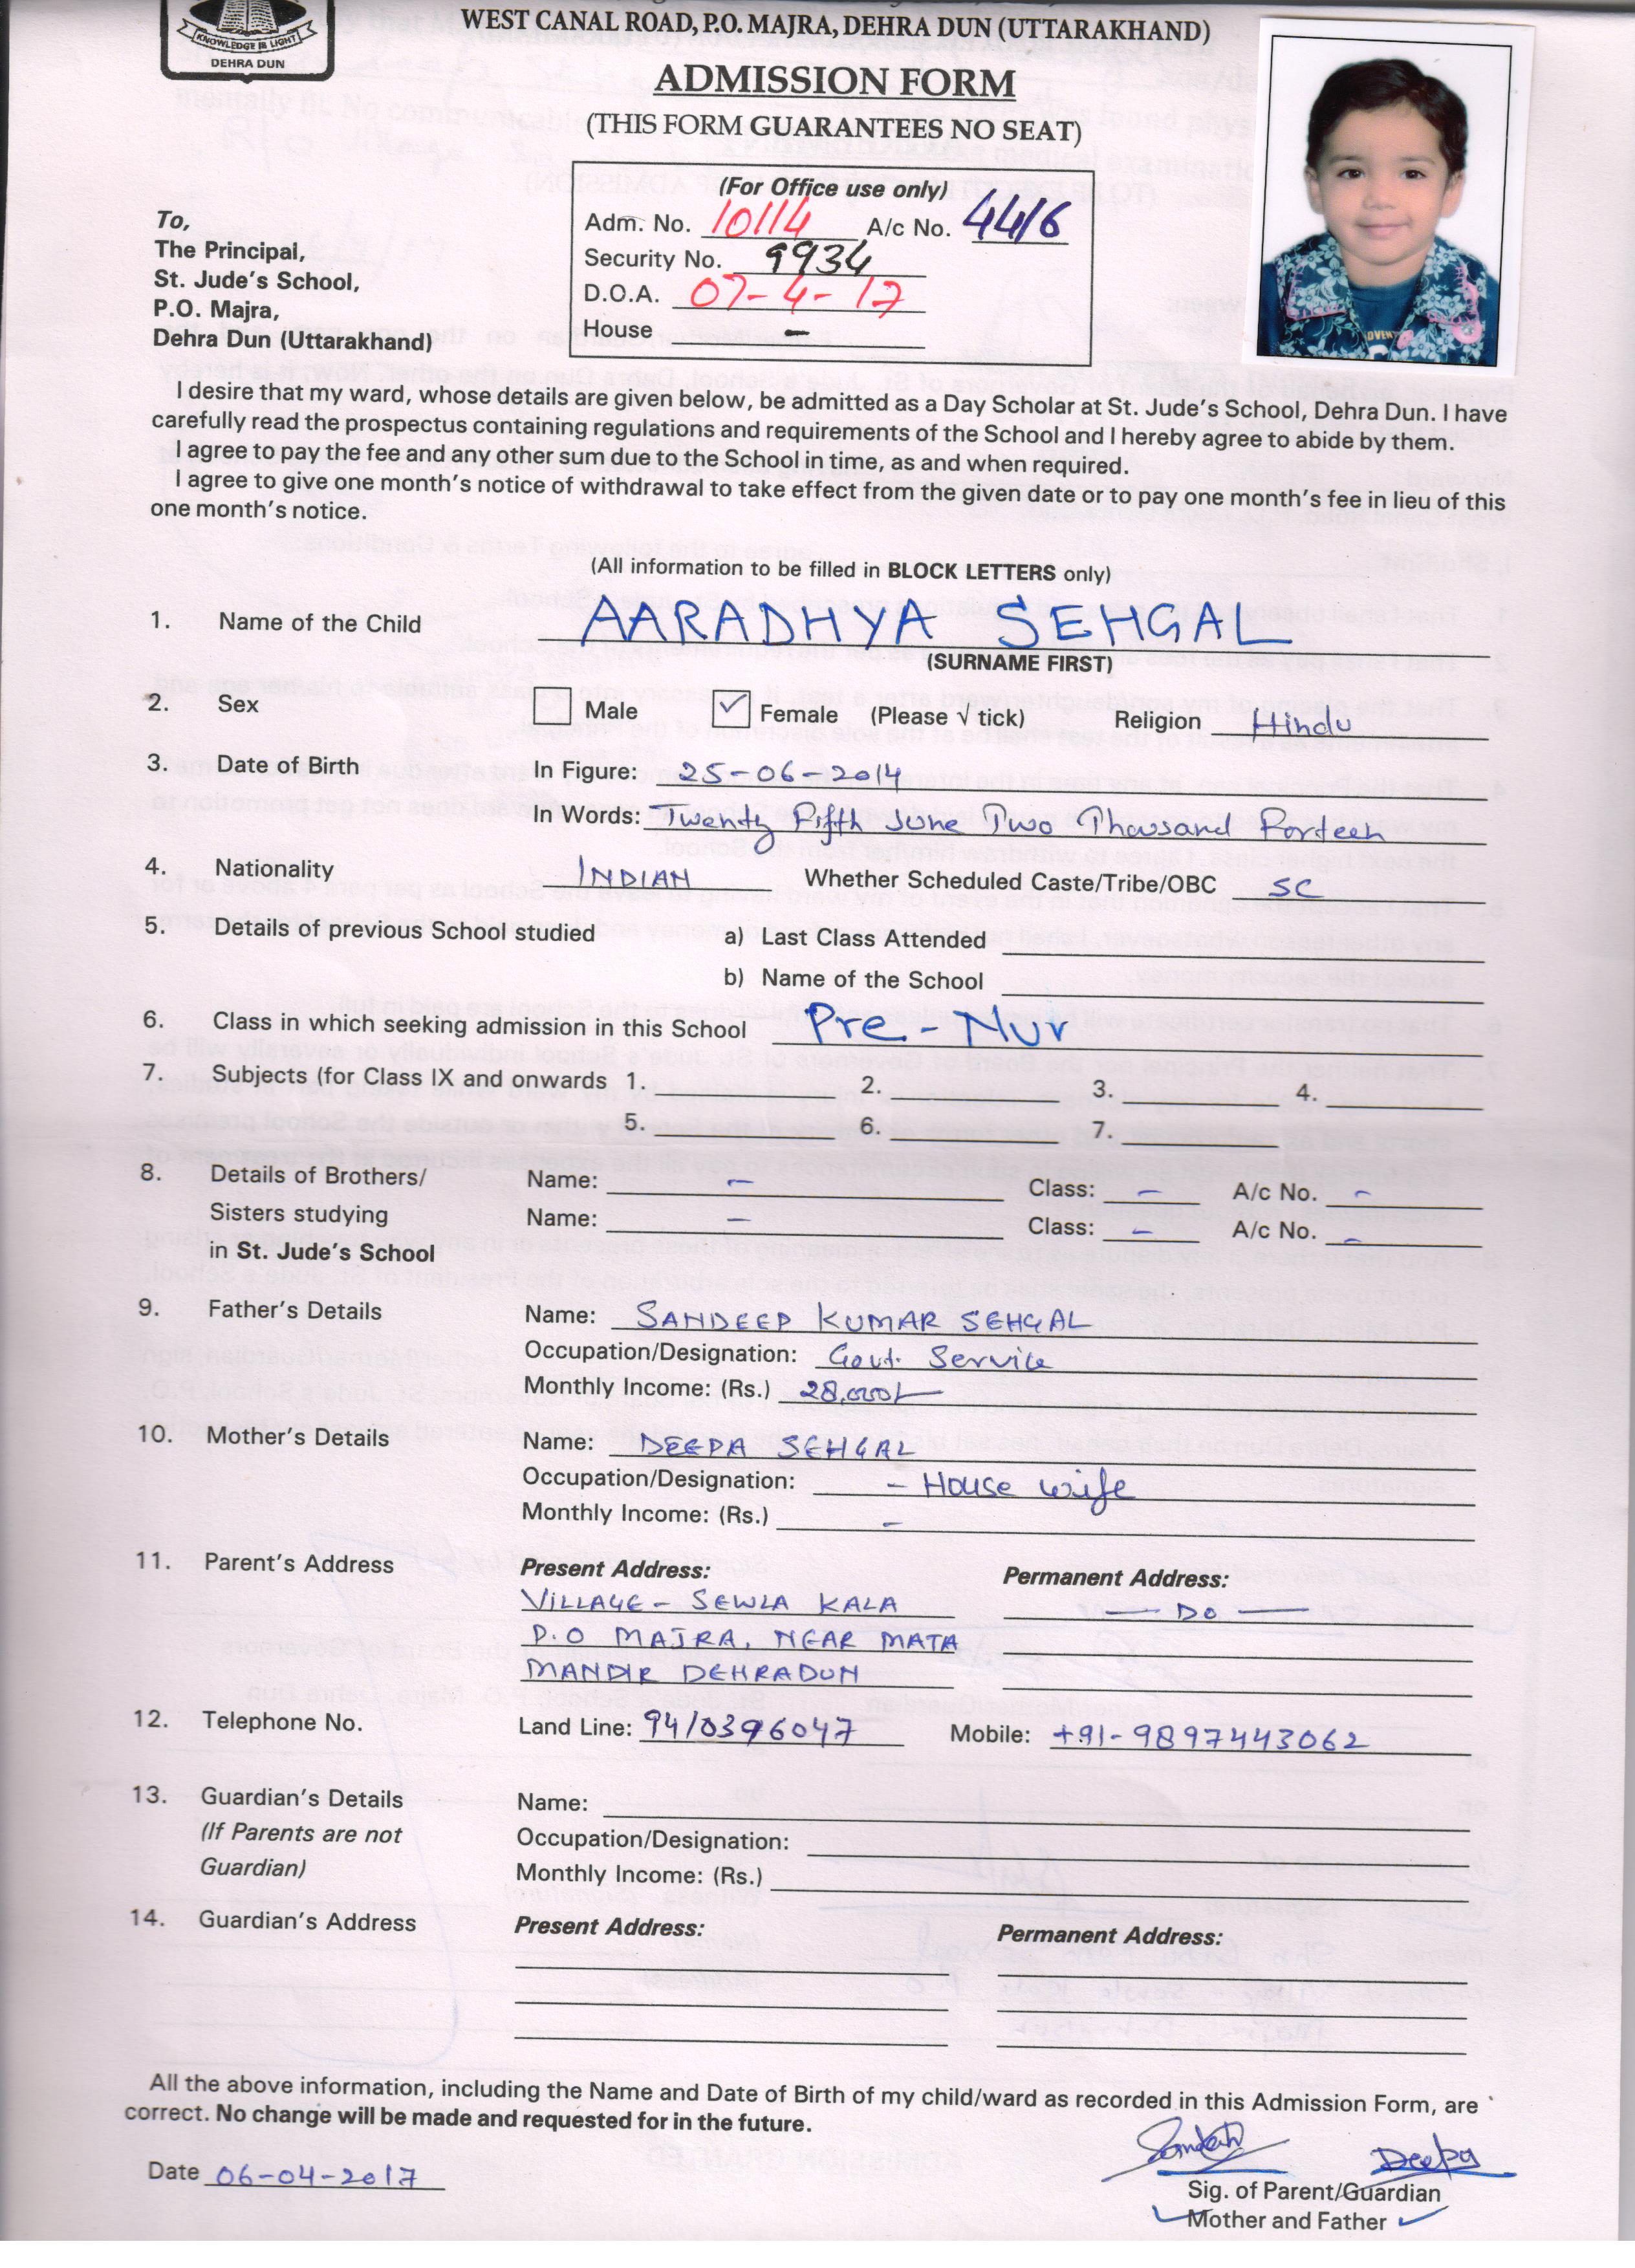 KNOWLEDGE IS LIGHT
DEHRA DUN
WEST CANAL ROAD, P.O. MAJRA, DEHRA DUN (UTTARAKHAND)
ADMISSION FORM
(THIS FORM GUARANTEES NO SEAT)
(For Office use only)
Adm. No. 10114 A/c No. 44/6
Security No. 9934
D.O.A. 07-4-17
House -
To,
The Principal,
St. Jude's School,
P.O. Majra,
Dehra Dun (Uttarakhand)
I desire that my ward, whose details are given below, be admitted as a Day Scholar at St. Jude's School, Dehra Dun. I have
carefully read the prospectus containing regulations and requirements of the School and I hereby agree to abide by them.
I agree to pay the fee and any other sum due to the School in time, as and when required.
I agree to give one month's notice of withdrawal to take effect from the given date or to pay one month's fee in lieu of this
one month's notice.
(All information to be filled in BLOCK LETTERS only)
1. Name of the Child AARADHYA SEHGAL
(SURNAME FIRST)
2. Sex Male ✓ Female (Please √ tick) Religion Hindu
3. Date of Birth In Figure: 25-06-2014
In Words: Twenty Fifth June Two Thousand Forteen
4. Nationality INDIAN Whether Scheduled Caste/Tribe/OBC SC
5. Details of previous School studied a) Last Class Attended
b) Name of the School
6. Class in which seeking admission in this School Pre-Nur
7. Subjects (for Class IX and onwards 1. 2. 3. 4.
5. 6. 7.
8. Details of Brothers/ Name: - Class: - A/c No. -
Sisters studying Name: - Class: - A/c No. -
in St. Jude's School
9. Father's Details Name: SANDEEP KUMAR SEHGAL
Occupation/Designation: Govt. Service
Monthly Income: (Rs.) 28,000/-
10. Mother's Details Name: DEEPA SEHGAL
Occupation/Designation: - House wife
Monthly Income: (Rs.) -
11. Parent's Address Present Address: Permanent Address:
VILLAGE - SEWLA KALA — DO —
P.O MAJRA, NEAR MATA
MANDIR DEHRADUN
12. Telephone No. Land Line: 9410396047 Mobile: +91-9897443062
13. Guardian's Details Name:
(If Parents are not Occupation/Designation:
Guardian) Monthly Income: (Rs.)
14. Guardian's Address Present Address: Permanent Address:
All the above information, including the Name and Date of Birth of my child/ward as recorded in this Admission Form, are
correct. No change will be made and requested for in the future.
Date 06-04-2017 Deepa
Sig. of Parent/Guardian
Mother and Father